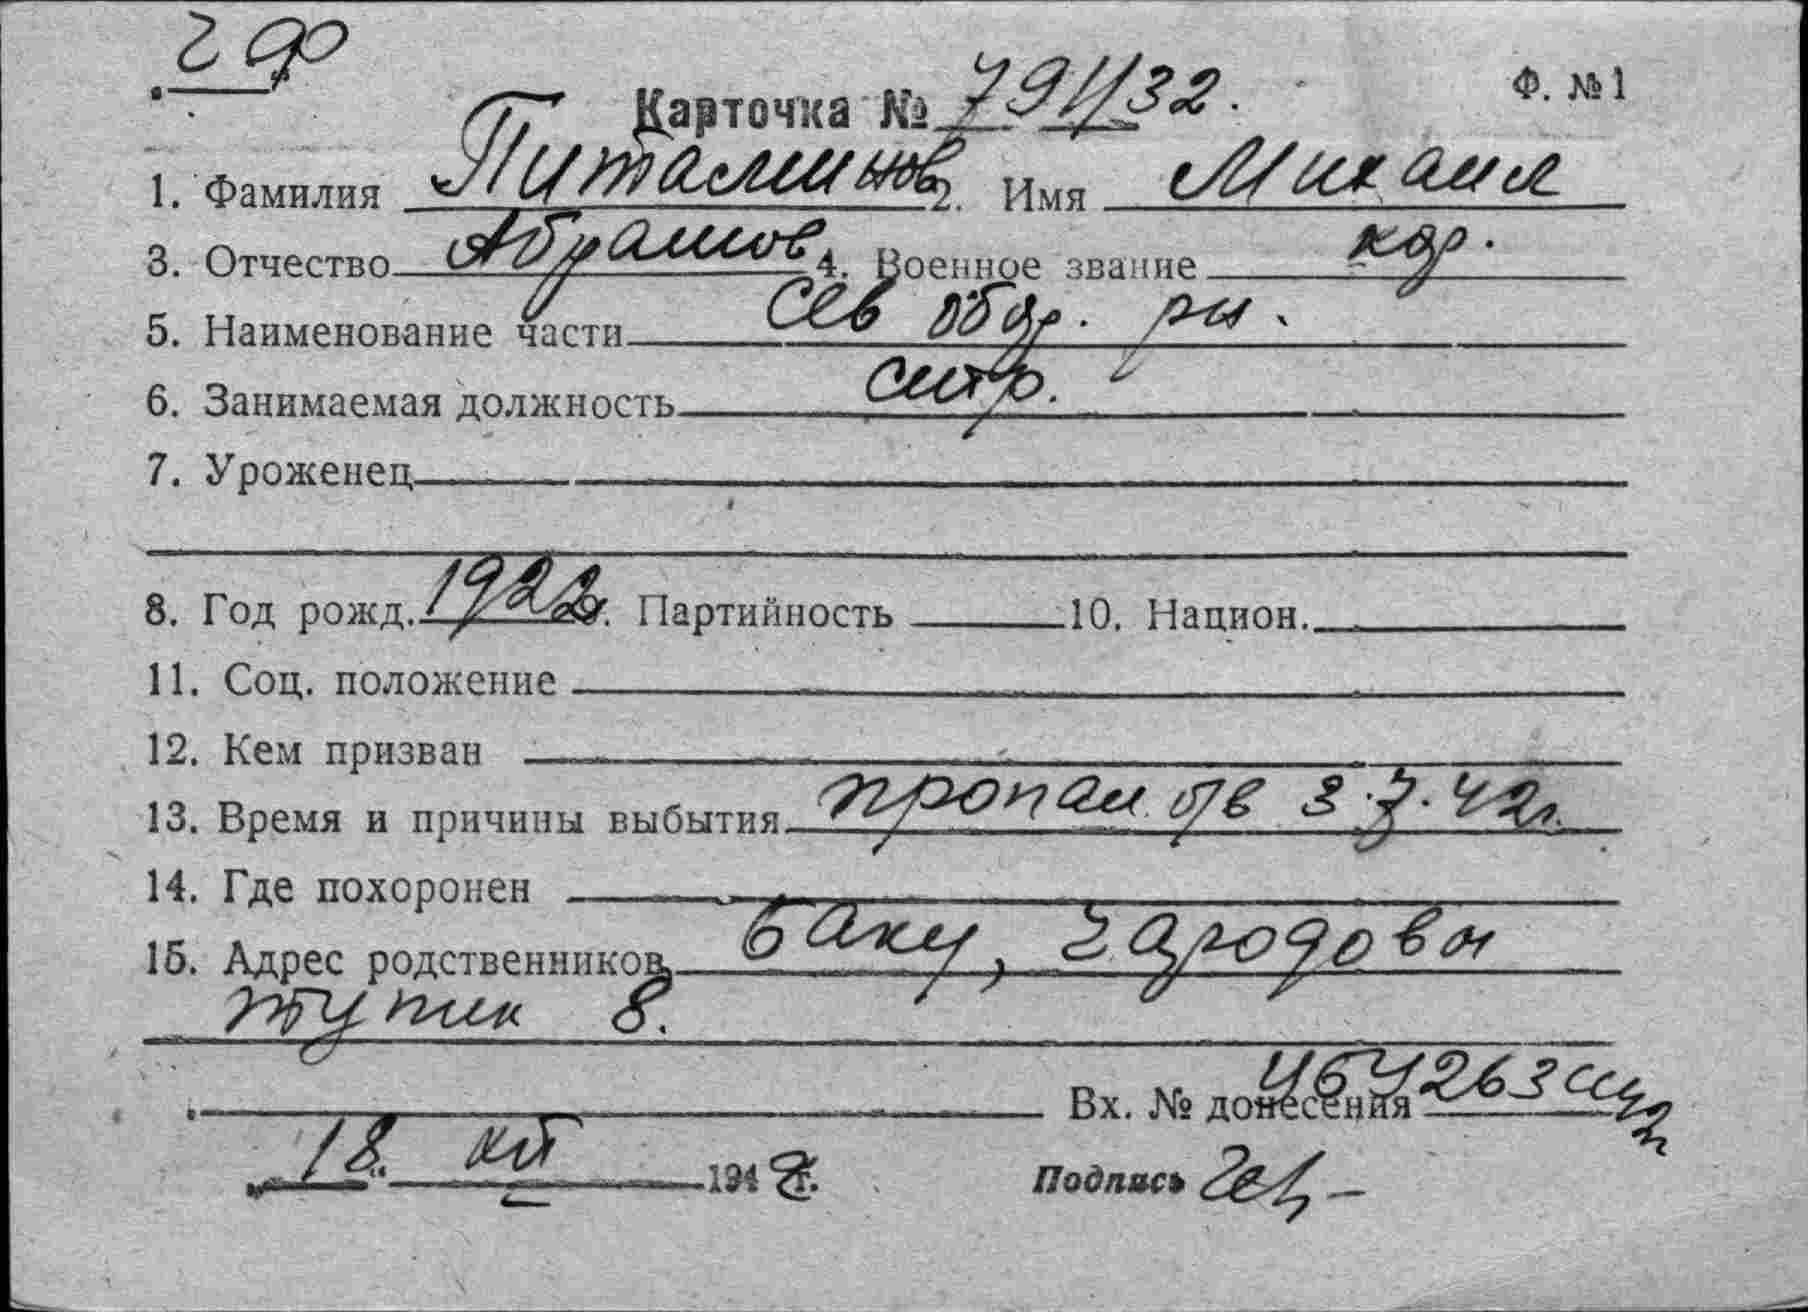 г др
Ф. №1
Карточка № 791/32.
1. Фамилия Питаминов 2. Имя Михаил
3. Отчество Абрамов 4. Военное звание кдр.
5. Наименование части Сев
6. Занимаемая должность
7. Уроженец
8. Год рожд. 1922 г. Партийность 10. Национ.
11. Соц. положение
12. Кем призван
13. Время и причины выбытия пропал б/в 3.7.42г.
14. Где похоронен
15. Адрес родственников Баку,
тупик 8.
Вх. № донесения
18. 194 г.
Подпись